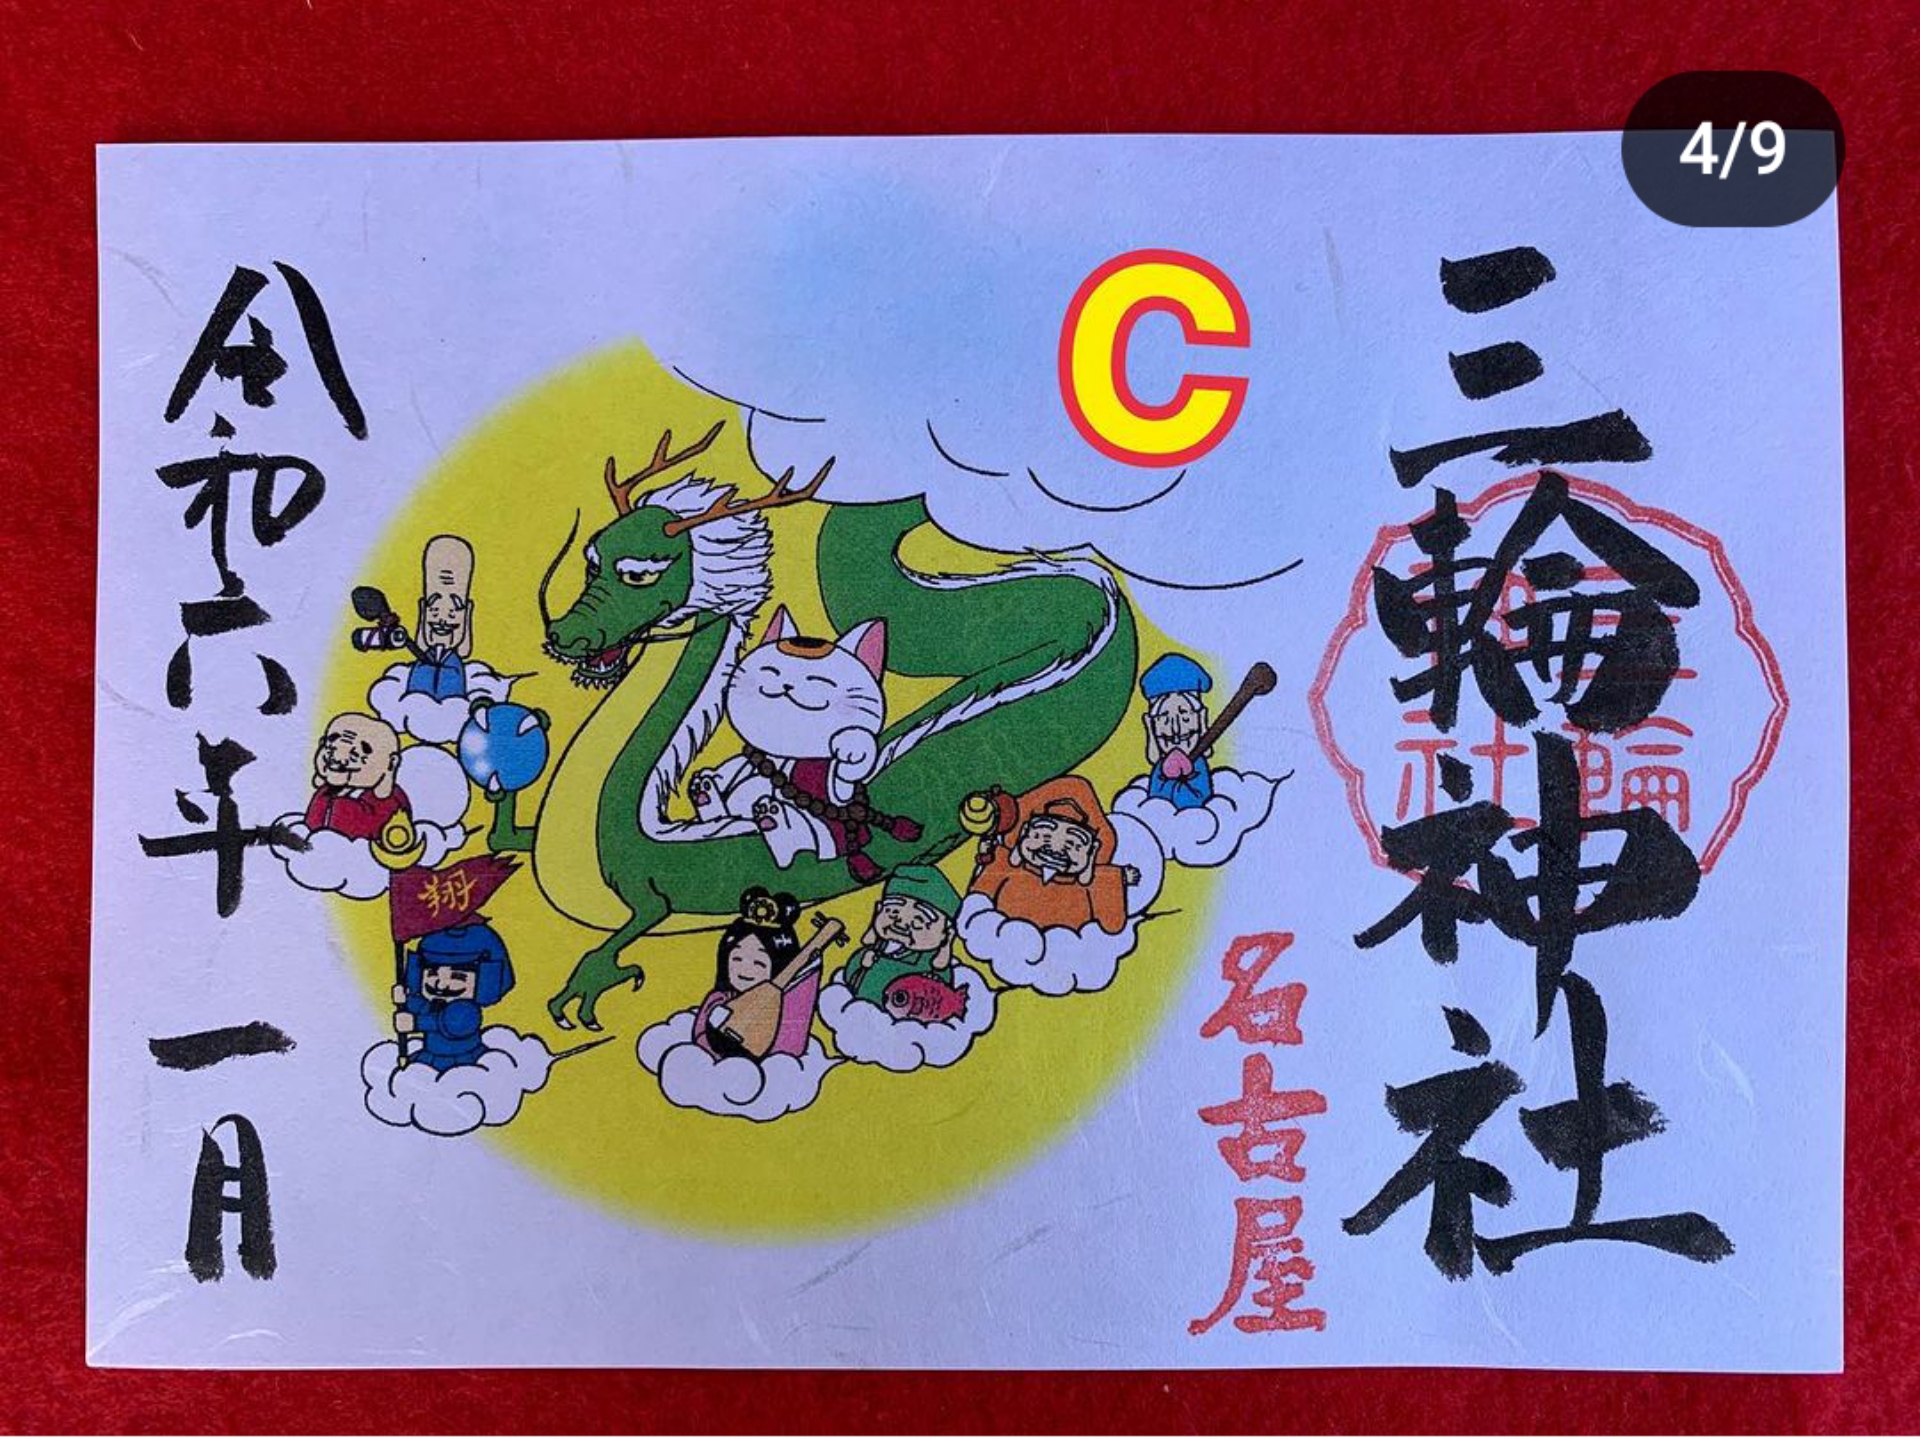 4/9
C
三輪神社
三輪
神社
名古屋
翔
令和六年一月